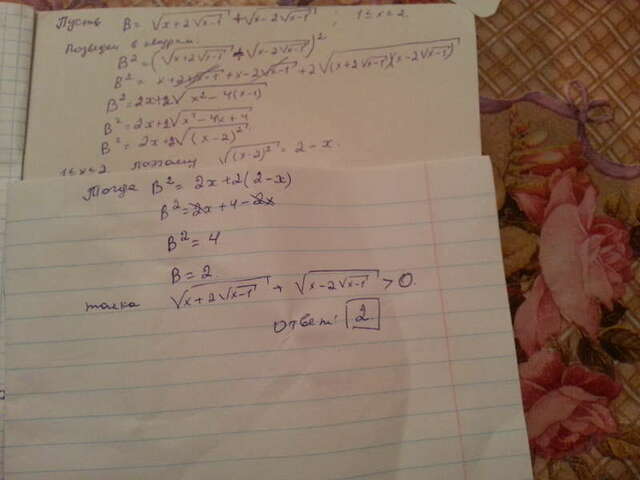 Пусть B = √(x+2√(x-1)) + √(x-2√(x-1)), 1≤x≤2.
Возведем в квадрат:
B² = (√(x+2√(x-1)) + √(x-2√(x-1)))²
B² = x+2√(x-1) + x-2√(x-1) + 2√((x+2√(x-1))(x-2√(x-1)))
B² = 2x+2√(x²-4(x-1))
B² = 2x+2√(x²-4x+4)
B² = 2x+2√((x-2)²)
1≤x≤2. поэтому √((x-2)²) = 2-x.
Тогда B² = 2x+2(2-x)
B² = 2x+4-2x
B² = 4
B = 2.
√(x+2√(x-1)) + √(x-2√(x-1)) > 0.
Ответ: 2